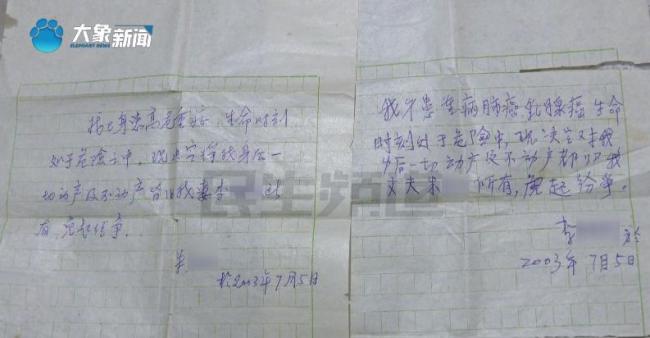 大象新闻
ELEPHANT NEWS
民生频道
身患高危重症，生命时刻
处于危险之中，现
我身后一
切动产及不动产皆归我妻李 所
有，免起纷争。
朱
於2003年7月5日
我身患 病肺癌乳腺癌生命
时刻处于危险中，现决定 我
身后一切动产及不动产都归我
丈夫朱 所有，免起纷争。
李 於
2003年7月5日